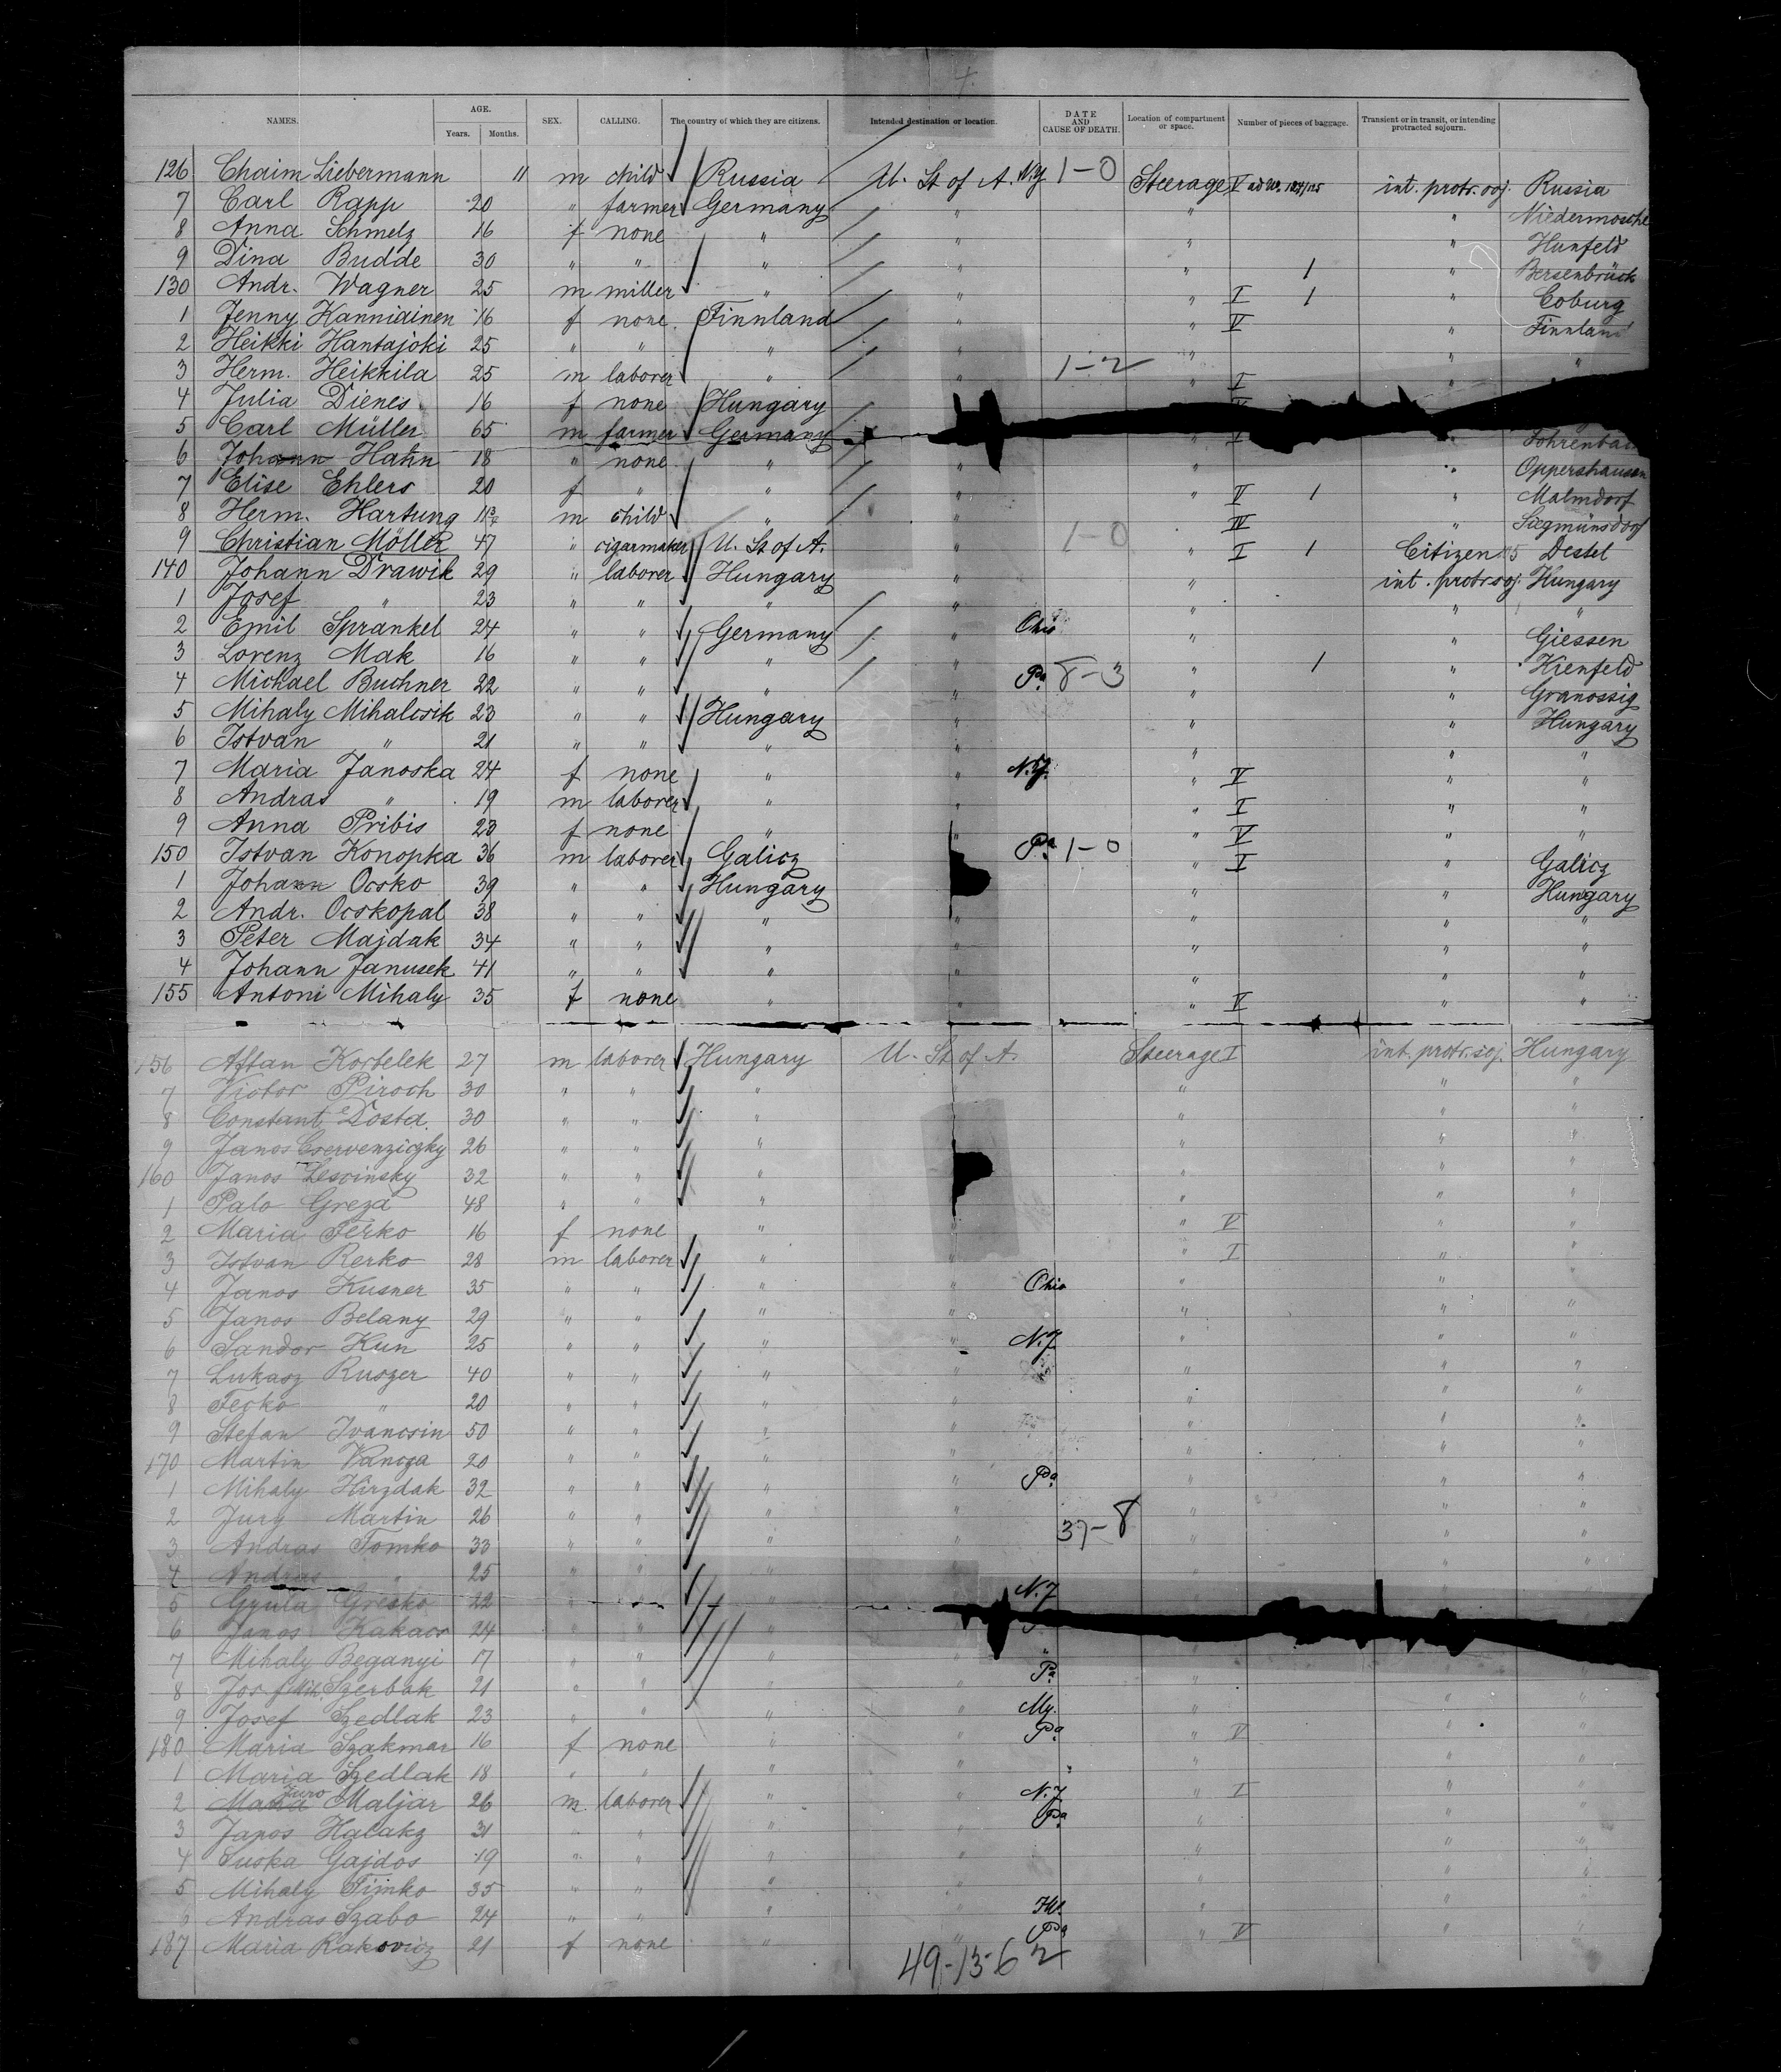 4.
NAMES. AGE. Years. Months. SEX. CALLING. The country of which they are citizens. Intended destination or location. DATE AND CAUSE OF DEATH. Location of compartment or space. Number of pieces of baggage. Transient or in transit, or intending protracted sojourn.
126 Chaim Liebermann 11 m child Russia U. St of A. N.Y 1-0 Steerage V int. protr. soj. Russia
7 Carl Rapp 20 " farmer Germany " " "
8 Anna Schmelz 16 f none " " " " Hunfeld
9 Dina Budde 30 " " " " " 1 " Bersenbrück
130 Andr. Wagner 25 m miller " " " I 1 " Coburg
1 Jenny Kanniainen 16 f none Finnland " " V " Finnland
2 Heikki Hantajoki 25 " " " " " " "
3 Herm. Heikkila 25 m laborer " " 1-2 " I
4 Julia Dienes 16 f none Hungary
5 Carl Müller 65 m farmer Germany
6 Johann Hahn 18 " none " " " "
7 Elise Ehlers 20 f " " " " V 1 " Oppershausen
8 Herm. Hartung 11 3/4 m child " " " IV " Malmdorf
9 Christian Möller 47 " cigarmaker U. St of A. " 1-0 " I 1 Citizen Destel
140 Johann Drawik 29 " laborer Hungary " " int. protr. soj. Hungary
1 Josef " 23 " " " " " " "
2 Emil Sprankel 24 " " Germany " Ohio " " Giessen
3 Lorenz Mak 16 " " " " " 1 " Kienfeld
4 Michael Buchner 22 " " " " Pa 8-3 " " Granossig
5 Mihaly Mihalcsik 23 " " Hungary " " " Hungary
6 Istvan " 21 " " " " " " "
7 Maria Janoska 24 f none " " N.Y. " V " "
8 Andras " 19 m laborer " " " I " "
9 Anna Pribis 23 f none " " " V " "
150 Istvan Konopka 36 m laborer Galicz Pa 1-0 " I " Galicz
1 Johann Ocsko 39 " " Hungary " " Hungary
2 Andr. Ocskopal 38 " " " " " " "
3 Peter Majdak 34 " " " " " " "
4 Johann Janusek 41 " " " " " " "
155 Antoni Mihaly 35 f none " " " V " "
156 Aftan Korbelek 27 m laborer Hungary U. St of A. Steerage I int. protr. soj. Hungary
7 Victor Piroch 30 " " " " " "
8 Constant Dosta 30 " " " " " "
9 Janos Cservenziczky 26 " " " " " "
160 Janos Lesvinsky 32 " " " " " "
1 Palo Greza 48 " " " " " "
2 Maria Ferko 16 f none " " " V " "
3 Istvan Rerko 28 m laborer " " " I " "
4 Janos Kusner 35 " " " " Ohio " " "
5 Janos Belany 29 " " " " " " "
6 Sandor Kun 25 " " " " N.J. " " "
7 Lukasz Ruszer 40 " " " " " " "
8 Fecko " 20 " " " " " " "
9 Stefan Ivancsin 50 " " " " " " "
170 Martin Vancza 20 " " " " " " "
1 Mihaly Hirzdak 32 " " " " Pa. " " "
2 Jury Martin 26 " " " " " " "
3 Andras Tomko 33 " " " " 37-8 " " "
4 Andras " 25 " " " " " " "
5 Gyula Gresko 22 " " " N.J.
6 Janos Kakacs 24 " " "
7 Mihaly Beganyi 17 " " " " "
8 Szerbak 21 " " " " Pa " " "
9 Josef Szedlak 23 " " " " " " "
180 Maria Szakmar 16 f none " " Pa " V " "
1 Maria Szedlak 18 " " " " " " " "
2 Juro Maljar 26 m laborer " " N.J. " I " "
3 Janos Halakz 31 " " " " Pa " " "
4 Suska Gajdos 19 " " " " " " "
5 Mihaly Timko 35 " " " " " " "
6 Andras Szabo 24 " " " " " " "
187 Maria Rakovicz 21 f none " " Pa " V " "
49-13-6 2